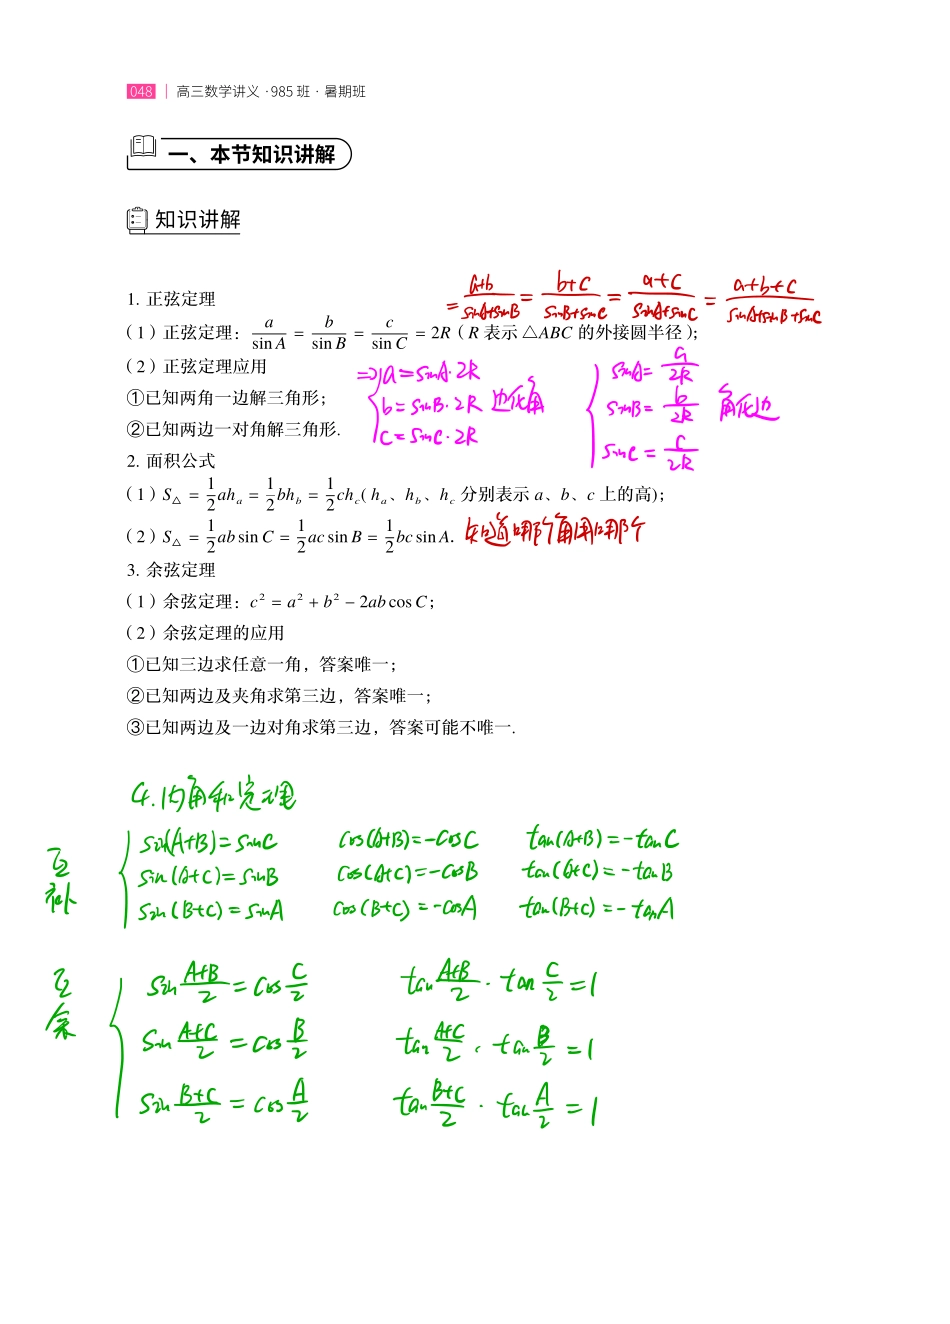 048 | 高三数学讲义 ·985 班 · 暑期班
一、本节知识讲解
知识讲解
1. 正弦定理
= (a+b)/(sinA+sinB) = (b+c)/(sinB+sinC) = (a+c)/(sinA+sinC) = (a+b+c)/(sinA+sinB+sinC)
（1）正弦定理：a/sin A = b/sin B = c/sin C = 2R（R 表示 △ABC 的外接圆半径）;
（2）正弦定理应用
⇒ { a=sinA·2R
b=sinB·2R 边化角
c=sinC·2R
{ sinA= a/2R
sinB= b/2R 角化边
sinC= c/2R
①已知两角一边解三角形；
②已知两边一对角解三角形.
2. 面积公式
（1）S△ = 1/2 ahₐ = 1/2 bh_b = 1/2 ch_c( hₐ、h_b、h_c 分别表示 a、b、c 上的高)；
（2）S△ = 1/2 ab sin C = 1/2 ac sin B = 1/2 bc sin A. 知道哪个角用哪个
3. 余弦定理
（1）余弦定理：c² = a² + b² − 2ab cos C；
（2）余弦定理的应用
①已知三边求任意一角，答案唯一；
②已知两边及夹角求第三边，答案唯一；
③已知两边及一边对角求第三边，答案可能不唯一.
4.内角和定理
互补
{ sin(A+B)=sinC cos(A+B)=-cosC tan(A+B)=-tanC
sin(A+C)=sinB cos(A+C)=-cosB tan(A+C)=-tanB
sin(B+C)=sinA cos(B+C)=-cosA tan(B+C)=-tanA
互余
{ sin (A+B)/2 = cos C/2 tan (A+B)/2 · tan C/2 =1
sin (A+C)/2 = cos B/2 tan (A+C)/2 · tan B/2 =1
sin (B+C)/2 = cos A/2 tan (B+C)/2 · tan A/2 =1